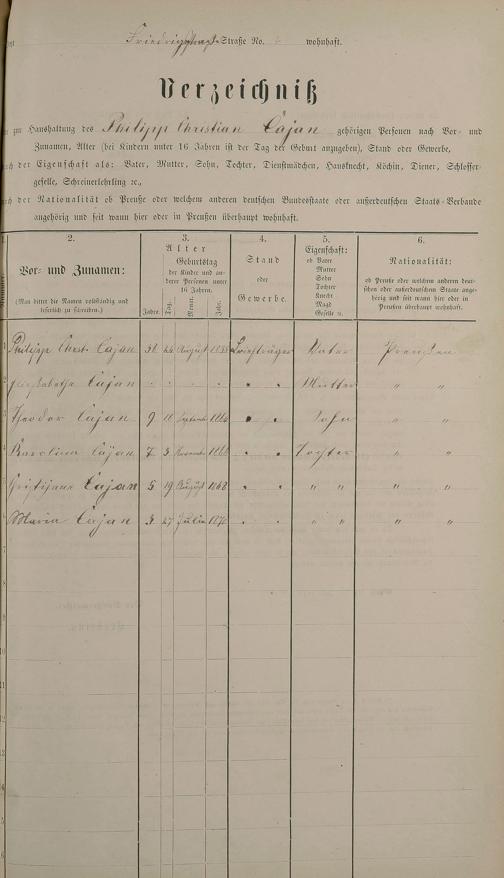 Straße No. wohnhaft.
Verzeichniß
zur Haushaltung des Philipp Christian Cajan gehörigen Personen nach Vor- und
Zunamen, Alter (bei Kindern unter 16 Jahren ist der Tag der Geburt anzugeben), Stand oder Gewerbe,
der Eigenschaft als: Vater, Mutter, Sohn, Tochter, Dienstmädchen, Hausknecht, Köchin, Diener, Schlosser-
geselle, Schreinerlehrling ꝛc.,
der Nationalität ob Preuße oder welchem anderen deutschen Bundesstaate oder außerdeutschen Staats-Verbande
angehörig und seit wann hier oder in Preußen überhaupt wohnhaft.
2. 3. 4. 5. 6.
Vor- und Zunamen:
(Man bittet die Namen vollständig und
leserlich zu schreiben.)
Alter
Geburtstag
der Kinder und an-
derer Personen unter
16 Jahren.
Jahre. Tag. Monat. Jahr.
Stand
oder
Gewerbe.
Eigenschaft:
ob Vater
Mutter
Sohn
Tochter
Knecht
Magd
Geselle u.
Nationalität:
ob Preuße oder welchem anderen deut-
schen oder außerdeutschen Staate ange-
hörig und seit wann hier oder in
Preußen überhaupt wohnhaft.
Philipp Christ. Cajan August Briefträger Vater Preußen
Cajan Mutter " "
3 Theodor Cajan 9 September Sohn " "
4 Karolina Cajan 7 November Tochter " "
5 Cajan 5 19 August 1868 " " " "
6 Maria Cajan 27 Julie " " " "
7
8
9
10
11
12
13